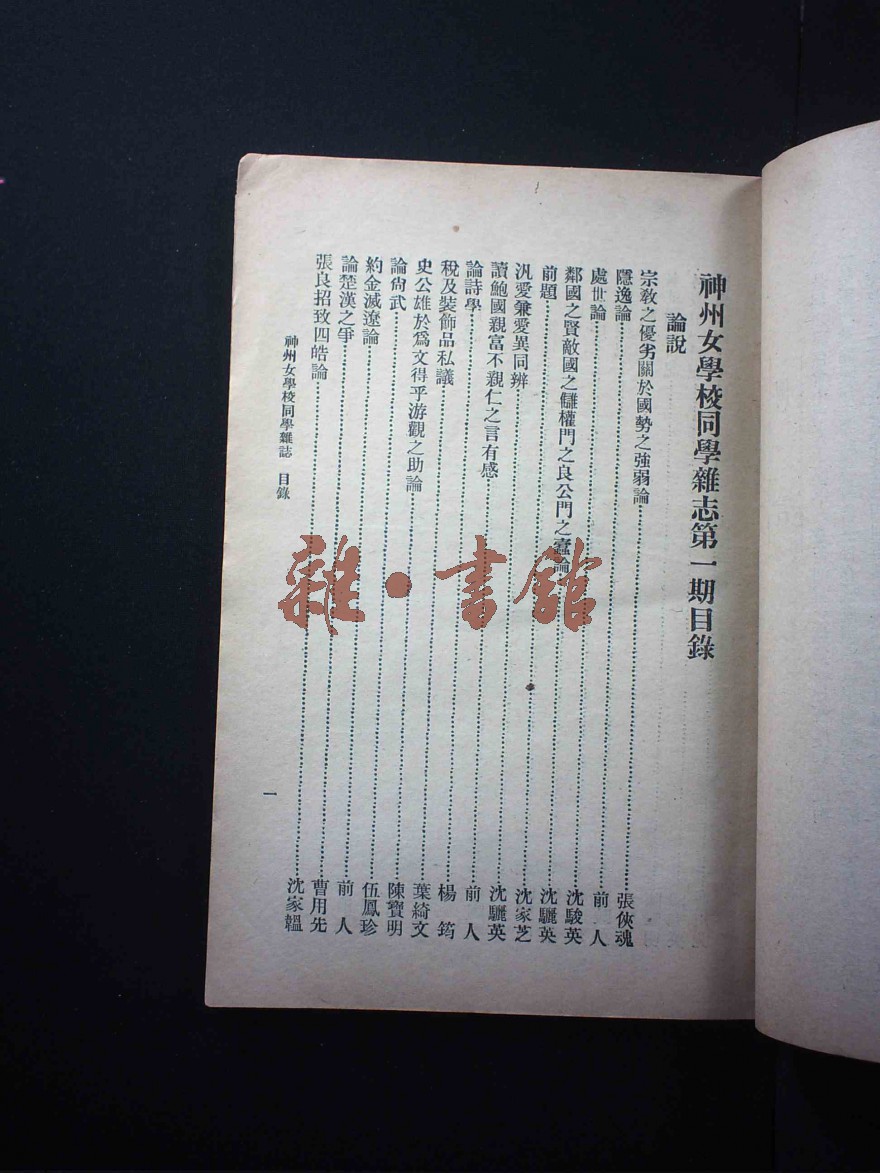 神州女學校同學雜志第一期目錄
論說
宗敎之優劣關於國勢之強弱論……張俠魂
隱逸論……前人
處世論……沈駿英
鄰國之賢敵國之讎權門之良公門之蠹論……沈驪英
前題……沈家芝
汎愛兼愛異同辨……沈驪英
讀鮑國親富不親仁之言有感……前人
論詩學……楊筠
稅及裝飾品私議……葉綺文
史公雄於爲文得乎游觀之助論……陳寶明
論尙武……伍鳳珍
約金滅遼論……前人
論楚漢之爭……曹用先
張良招致四皓論……沈家韞
神州女學校同學雜誌 目錄
一
雜·書館